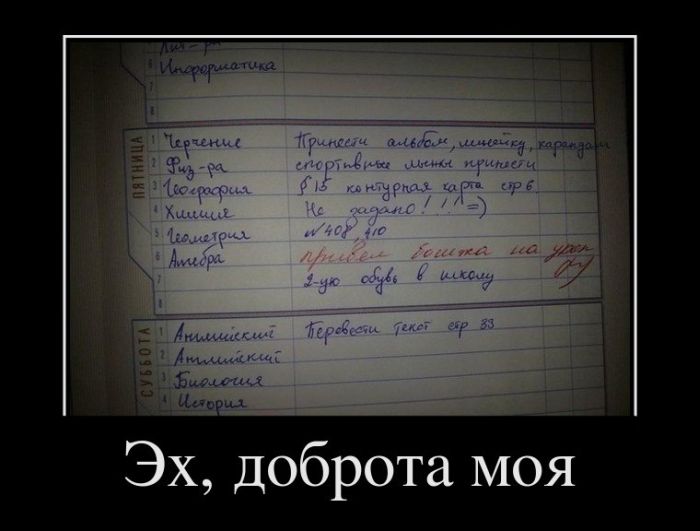 Лит-ра
6 Информатика
7
8
ПЯТНИЦА
1 Черчение Принести альбом, линейку, карандаш
2 Физ-ра спортивные лыжы принести
3 География § 15 контурная карта стр 6
4 Химия Не задано!!! =)
5 Геометрия № 408, 410
6 Алгебра привел на урок
7 2-ую обувь в школу
8
СУББОТА
1 Английский Перевести текст стр 33
2 Английский
3 Биология
4 История
Эх, доброта моя